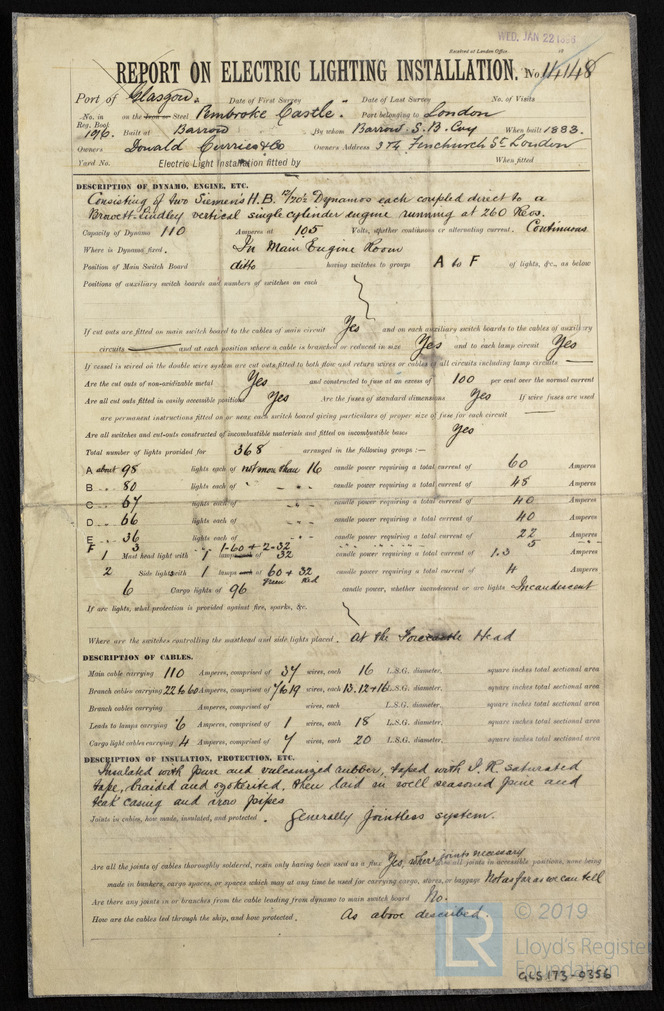 WED. JAN 22 1896
Received at London Office
REPORT ON ELECTRIC LIGHTING INSTALLATION. No. 14148
Port of Glasgow. Date of First Survey Date of Last Survey No. of Visits
No. in Reg. Book 1916. on the Iron or Steel "Pembroke Castle". Port belonging to London
Built at Barrow By whom Barrow S. B. Coy When built 1883.
Owners Donald Currie & Co Owners Address 3 & 4 Fenchurch St. London
Yard No. Electric Light Installation fitted by When fitted
DESCRIPTION OF DYNAMO, ENGINE, ETC.
Consisting of two Siemens H.B. Dynamos each coupled direct to a
Browett-Lindley vertical single cylinder engine running at 260 Revs.
Capacity of Dynamo 110 Amperes at 105 Volts, whether continuous or alternating current. Continuous
Where is Dynamo fixed. In Main Engine Room
Position of Main Switch Board ditto having switches to groups A to F of lights, &c., as below
Positions of auxiliary switch boards and numbers of switches on each
If cut outs are fitted on main switch board to the cables of main circuit Yes and on each auxiliary switch boards to the cables of auxiliary
circuits — and at each position where a cable is branched or reduced in size Yes and to each lamp circuit Yes
If vessel is wired on the double wire system are cut outs fitted to both flow and return wires or cables of all circuits including lamp circuits —
Are the cut outs of non-oxidizable metal Yes and constructed to fuse at an excess of 100 per cent over the normal current
Are all cut outs fitted in easily accessible positions Yes Are the fuses of standard dimensions Yes If wire fuses are used
are permanent instructions fitted on or near each switch board giving particulars of proper size of fuse for each circuit —
Are all switches and cut-outs constructed of incombustible materials and fitted on incombustible bases Yes
Total number of lights provided for 368 arranged in the following groups :—
A about 98 lights each of not more than 16 candle power requiring a total current of 60 Amperes
B .. 80 lights each of " " " candle power requiring a total current of 48 Amperes
C .. 67 lights each of " " candle power requiring a total current of 40 Amperes
D .. 66 lights each of " " candle power requiring a total current of 40 Amperes
E .. 36 lights each of " " " candle power requiring a total current of 22 Amperes
F 3 " " 1-60 + 2-32 " " " " " " 5 " "
1 Mast head light with 1 lamp each of 32 candle power requiring a total current of 1.3 Amperes
2 Side lights with 1 lamp each of 60 + 32 candle power requiring a total current of 4 Amperes
Green Red
6 Cargo lights of 96 candle power, whether incandescent or arc lights Incandescent
If arc lights, what protection is provided against fire, sparks, &c.
Where are the switches controlling the masthead and side lights placed. At the Forecastle Head
DESCRIPTION OF CABLES.
Main cable carrying 110 Amperes, comprised of 37 wires, each 16 L.S.G. diameter, square inches total sectional area
Branch cables carrying 22 to 60 Amperes, comprised of 7 to 19 wires, each 13. 12 + 16 L.S.G. diameter, square inches total sectional area
Branch cables carrying Amperes, comprised of wires, each L.S.G. diameter, square inches total sectional area
Leads to lamps carrying .6 Amperes, comprised of 1 wires, each 18 L.S.G. diameter, square inches total sectional area
Cargo light cables carrying 4 Amperes, comprised of 7 wires, each 20 L.S.G. diameter, square inches total sectional area
DESCRIPTION OF INSULATION, PROTECTION, ETC.
Insulated with pure and vulcanized rubber, taped with I. R. saturated
tape, braided and ozokerited, then laid in well seasoned pine and
teak casing and iron pipes
Joints in cables, how made, insulated, and protected . Generally jointless system.
Are all the joints of cables thoroughly soldered, resin only having been used as a flux Yes, where joints necessary Are all joints in accessible positions, none being
made in bunkers, cargo spaces, or spaces which may at any time be used for carrying cargo, stores, or baggage Not as far as we can tell
Are there any joints in or branches from the cable leading from dynamo to main switch board No.
How are the cables led through the ship, and how protected . As above described.
© 2019
LR
Lloyd's Register
Foundation
GLS173-0356